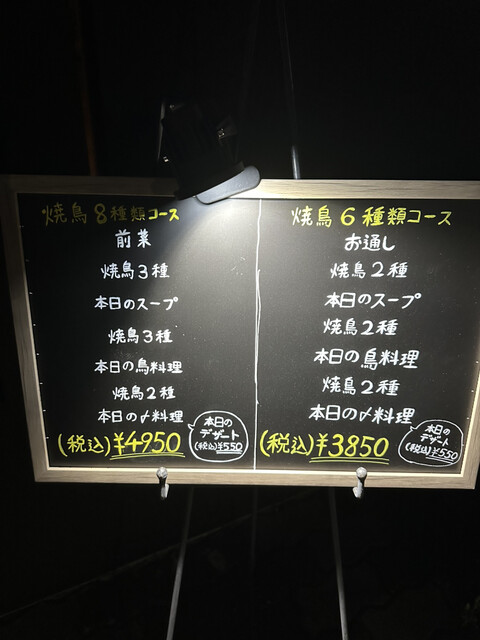 焼鳥8種類コース
前菜
焼鳥3種
本日のスープ
焼鳥3種
本日の鳥料理
焼鳥2種
本日の〆料理
(税込)¥4950
本日の
デザート
(税込)¥550
焼鳥6種類コース
お通し
焼鳥2種
本日のスープ
焼鳥2種
本日の鳥料理
焼鳥2種
本日の〆料理
(税込)¥3850
本日の
デザート
(税込)¥550